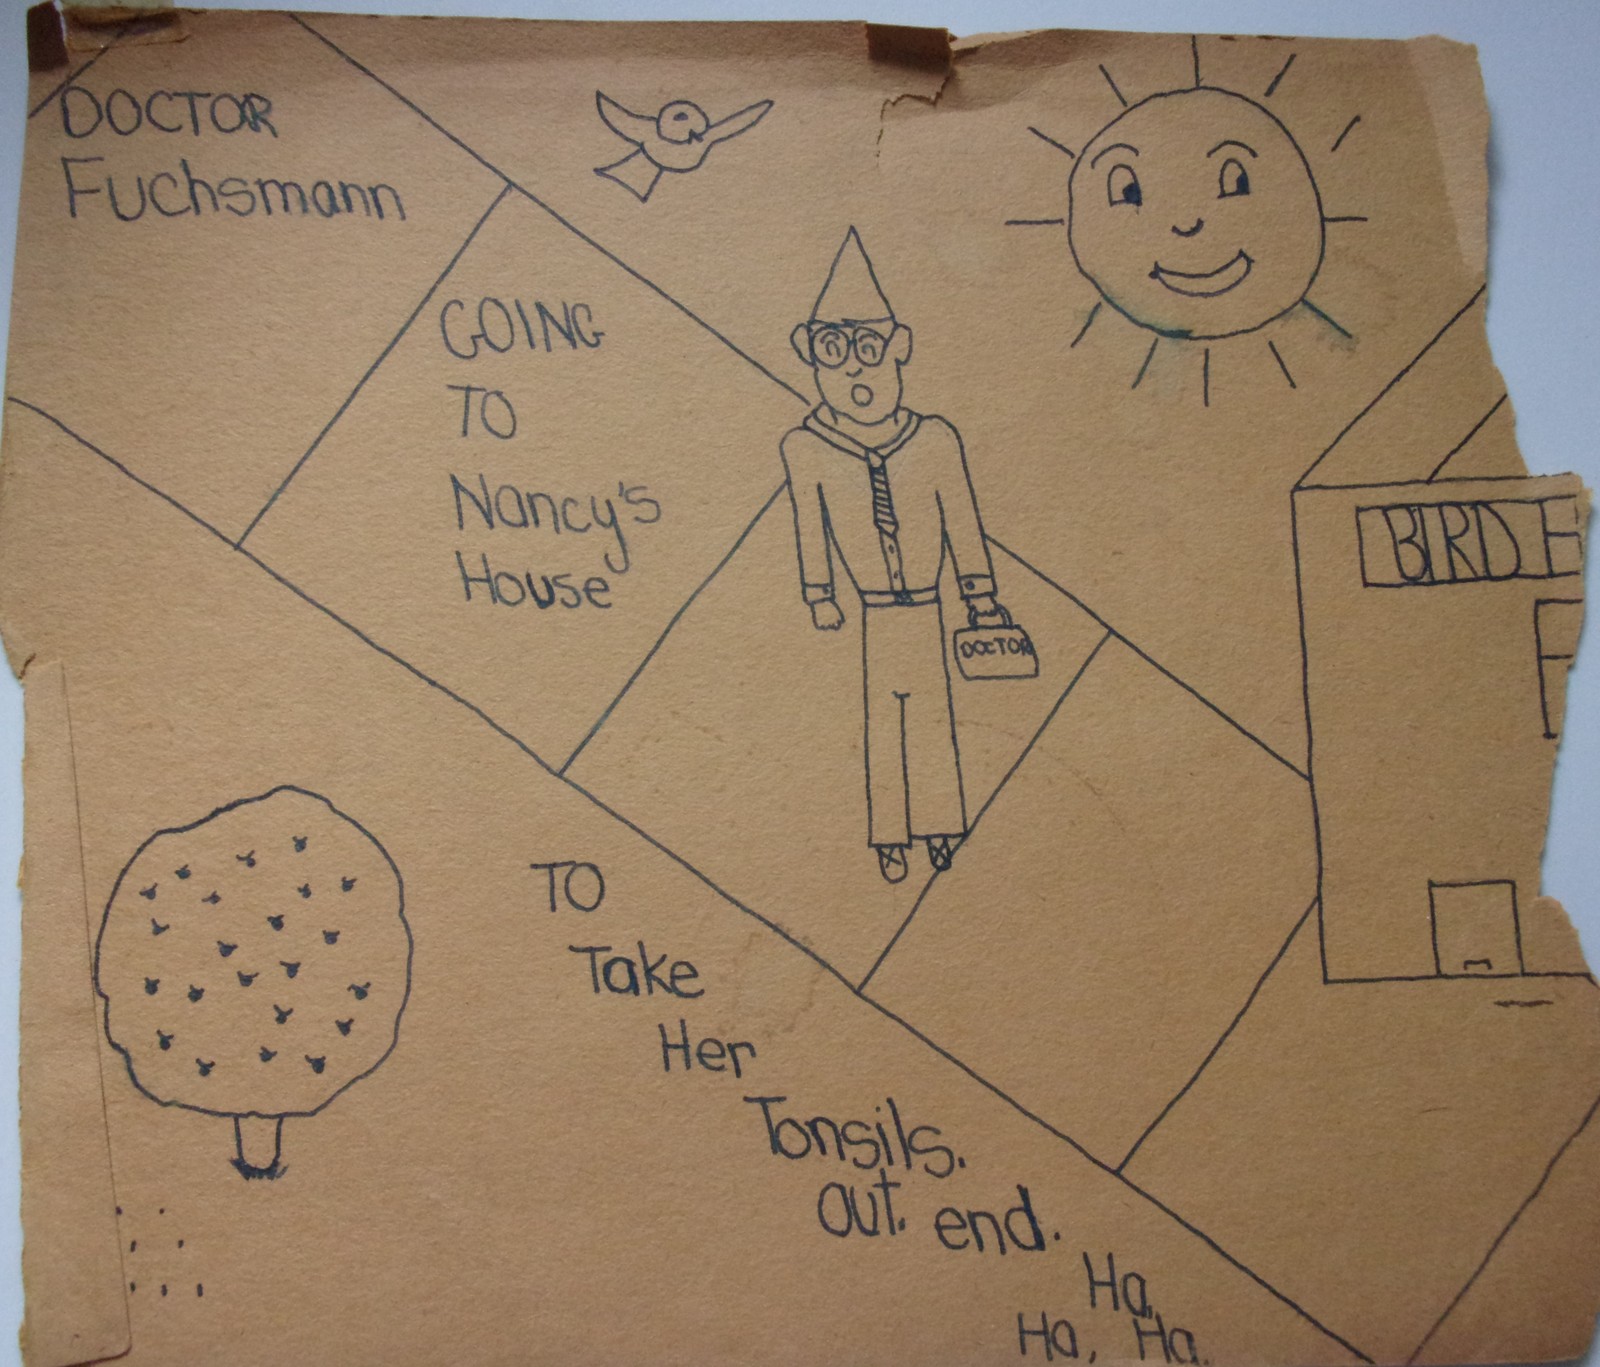 DOCTOR
Fuchsmann
GOING
TO
Nancy's
House
DOCTOR
BIRD
TO
Take
Her
Tonsils.
out. end.
Ha,
Ha, Ha.